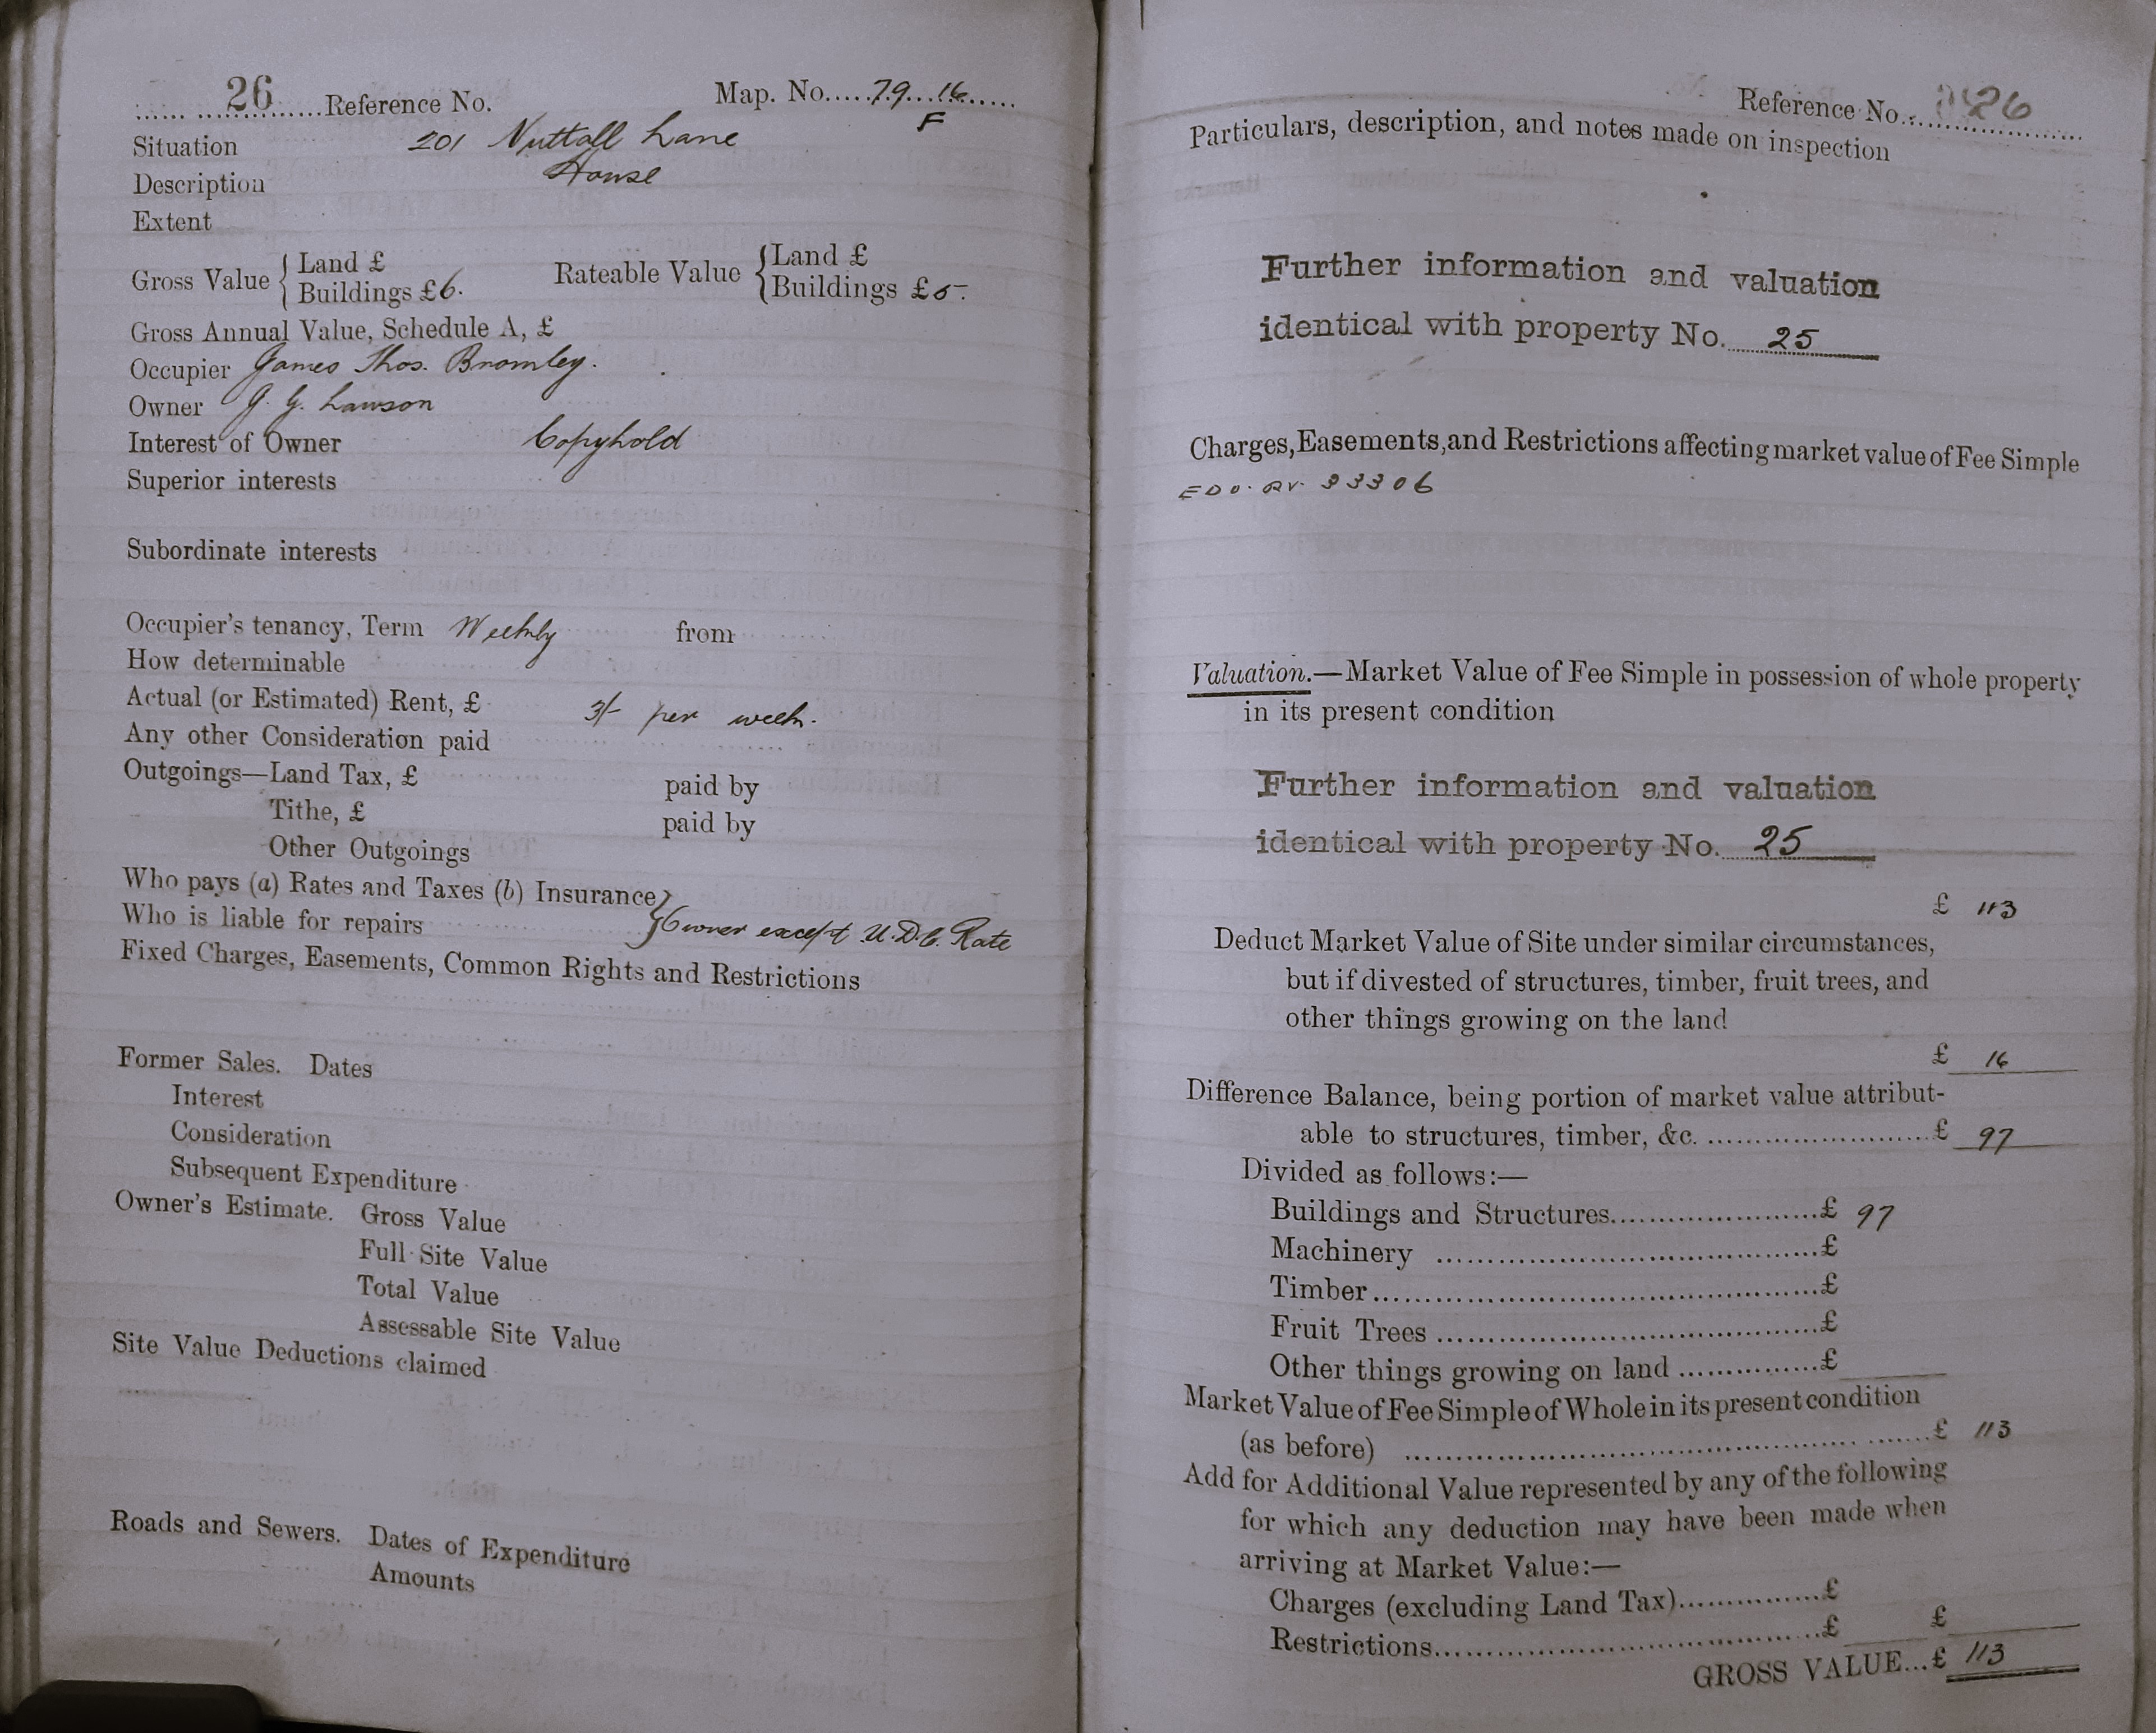 26 Reference No. Map. No. 79 16
F
Situation 201 Nuttall Lane
Description House
Extent
Gross Value { Land £
Buildings £6. Rateable Value { Land £
Buildings £5-.
Gross Annual Value, Schedule A, £
Occupier James Thos. Bromley.
Owner J. G. Lawson
Interest of Owner Copyhold
Superior interests
Subordinate interests
Occupier's tenancy, Term Weekly from
How determinable
Actual (or Estimated) Rent, £ 3/- per week.
Any other Consideration paid
Outgoings—Land Tax, £ paid by
Tithe, £ paid by
Other Outgoings
Who pays (a) Rates and Taxes (b) Insurance }
Who is liable for repairs } Owner except U.D.C. Rate
Fixed Charges, Easements, Common Rights and Restrictions
Former Sales. Dates
Interest
Consideration
Subsequent Expenditure
Owner's Estimate. Gross Value
Full Site Value
Total Value
Assessable Site Value
Site Value Deductions claimed
Roads and Sewers. Dates of Expenditure
Amounts
Reference No. 26
Particulars, description, and notes made on inspection
Further information and valuation
identical with property No. 25
Charges, Easements, and Restrictions affecting market value of Fee Simple
33306
Valuation.—Market Value of Fee Simple in possession of whole property
in its present condition
Further information and valuation
identical with property No. 25
£ 113
Deduct Market Value of Site under similar circumstances,
but if divested of structures, timber, fruit trees, and
other things growing on the land
£ 16
Difference Balance, being portion of market value attribut-
able to structures, timber, &c. £ 97
Divided as follows:—
Buildings and Structures £ 97
Machinery £
Timber £
Fruit Trees £
Other things growing on land £
Market Value of Fee Simple of Whole in its present condition
(as before) £ 113
Add for Additional Value represented by any of the following
for which any deduction may have been made when
arriving at Market Value:—
Charges (excluding Land Tax) £
Restrictions £ £
GROSS VALUE...£ 113